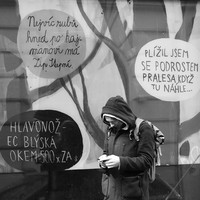 Nejvíc nubá
hned po kaj-
manovi má
PLÍŽIL JSEM
SE PODROSTEM
PRALESA, KDYŽ
TU NÁHLE...
HLAVONOŽ-
EC BLÝSKÁ
OKEM
ZA